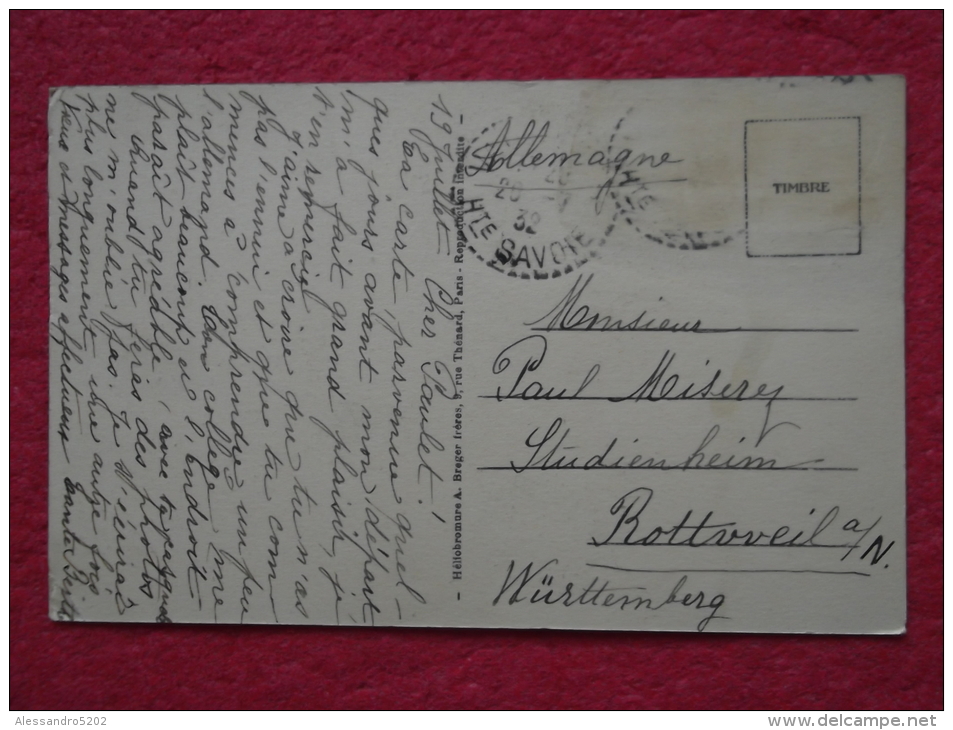 19 juillet. Cher Paulet!
Ta carte, parvenue quel-
ques jours avant mon départ
m'a fait grand plaisir, je
t'en remercie.
J'aime à croire que tu n'as
pas l'ennui et que tu com-
mences à comprendre un peu
l'allemand. Ton collège me
plaît beaucoup et l'endroit
paraît agréable, avec
Quand tu feras des photos
ne m'oublie pas. Je t'écrirai
plus longuement une autre fois
Vœux et messages affectueux tante
- Héliobromure A. Breger frères, 9, rue Thénard, Paris - Reproduction Interdite -
Allemagne
20
32
HTE SAVOIE
HTE
TIMBRE
Monsieur
Paul Miserez
Studienheim
Rottweil a/N.
Württemberg
Alessandro5202
www.delcampe.net